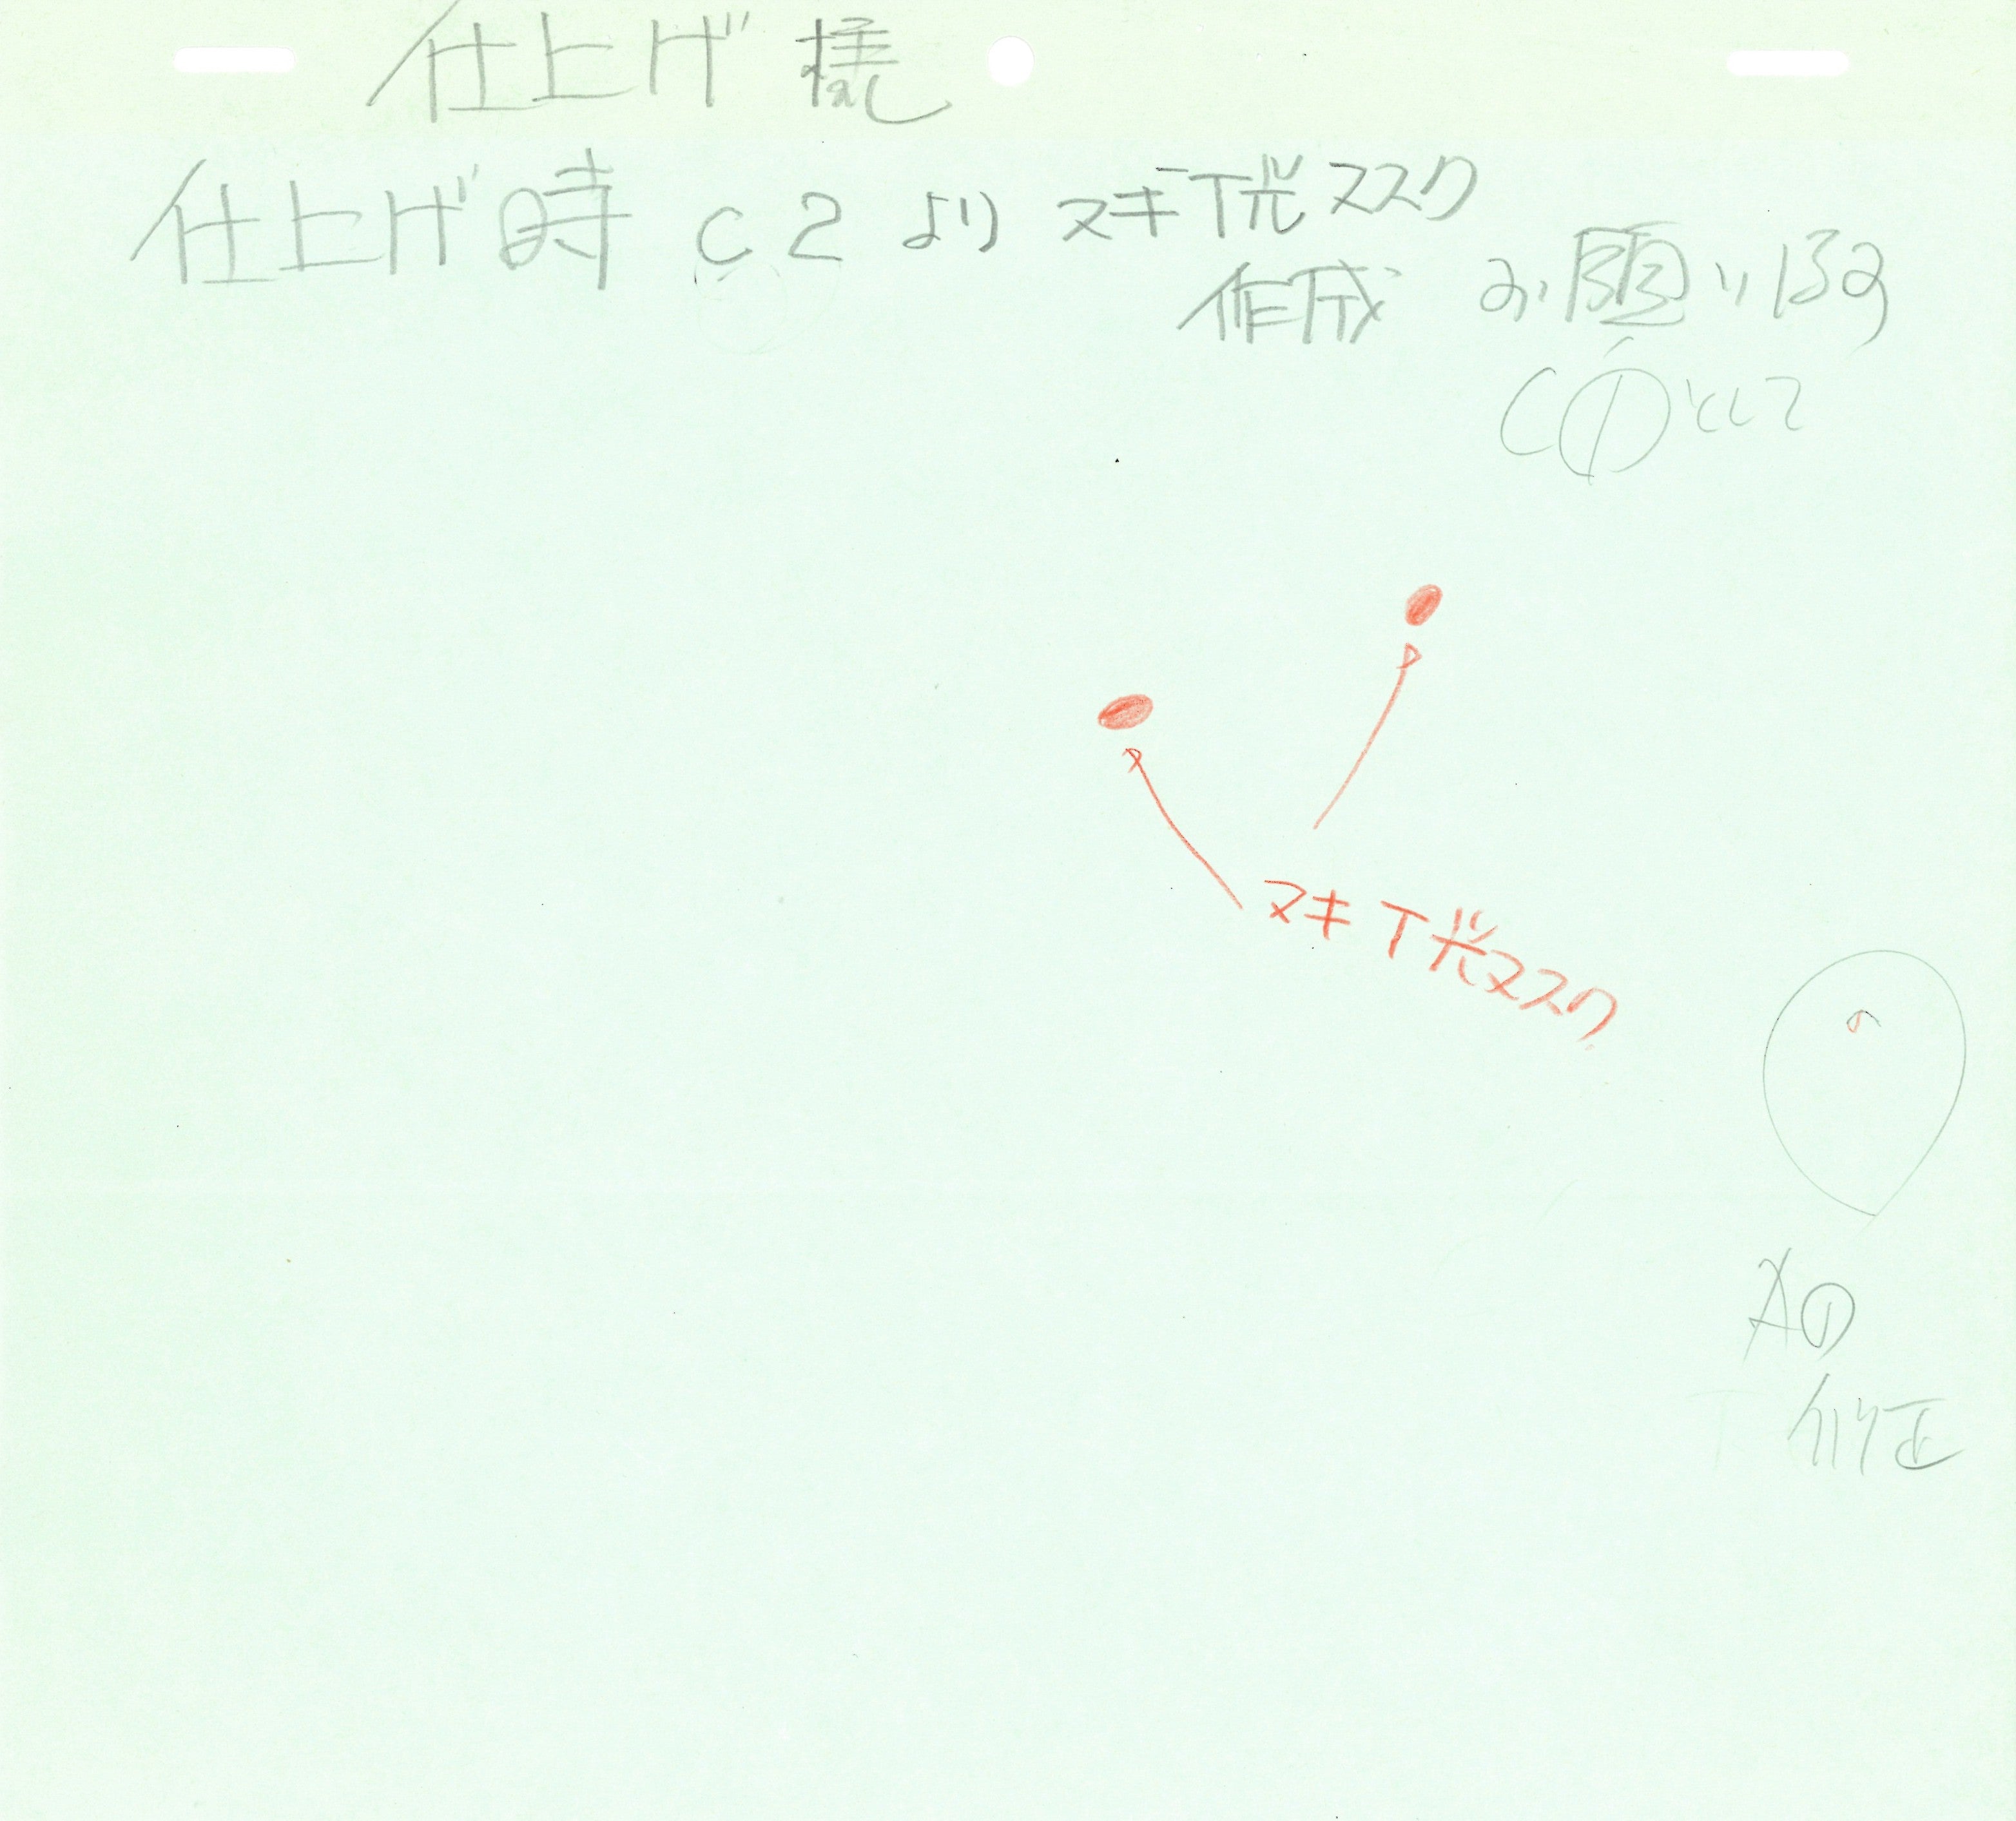 仕上げ様
仕上げ時 C2より ヌキT光マスク
作成 お願いします
C①として
ヌキT光マスク
A①
修正